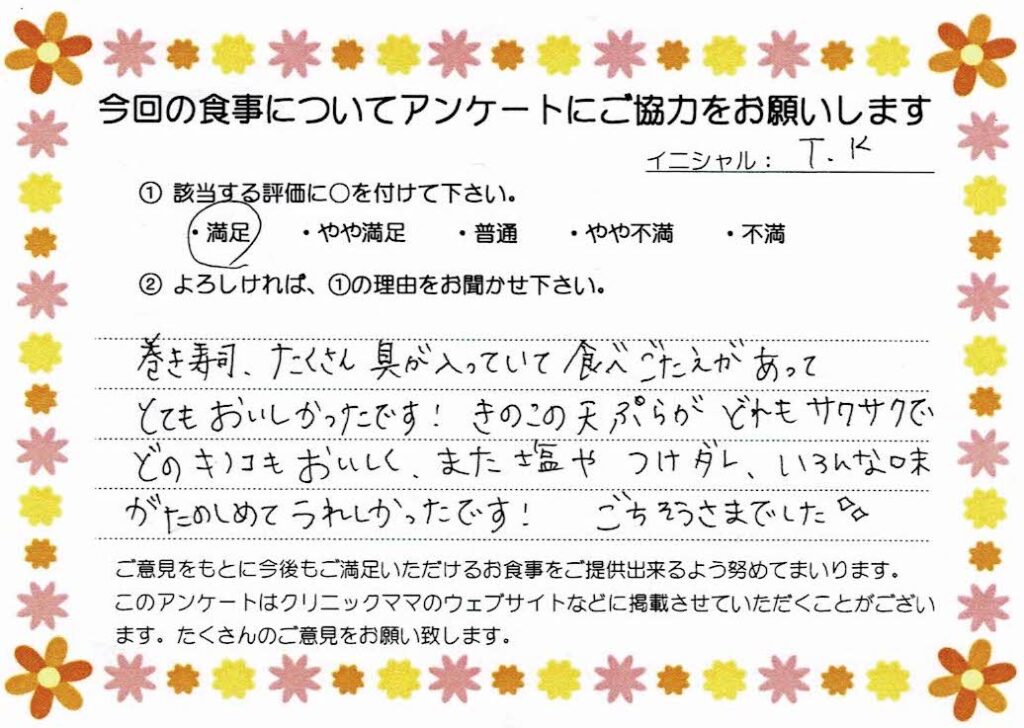 今回の食事についてアンケートにご協力をお願いします
イニシャル： T.K
① 該当する評価に〇を付けて下さい。
・満足 ・やや満足 ・普通 ・やや不満 ・不満
② よろしければ、①の理由をお聞かせ下さい。
巻き寿司、たくさん具が入っていて食べごたえがあって
とてもおいしかったです! きのこの天ぷらがどれもサクサクで
どのキノコもおいしく、また塩やつけダレ、いろんな味
がたのしめてうれしかったです! ごちそうさまでした
ご意見をもとに今後もご満足いただけるお食事をご提供出来るよう努めてまいります。
このアンケートはクリニックママのウェブサイトなどに掲載させていただくことがござい
ます。たくさんのご意見をお願い致します。